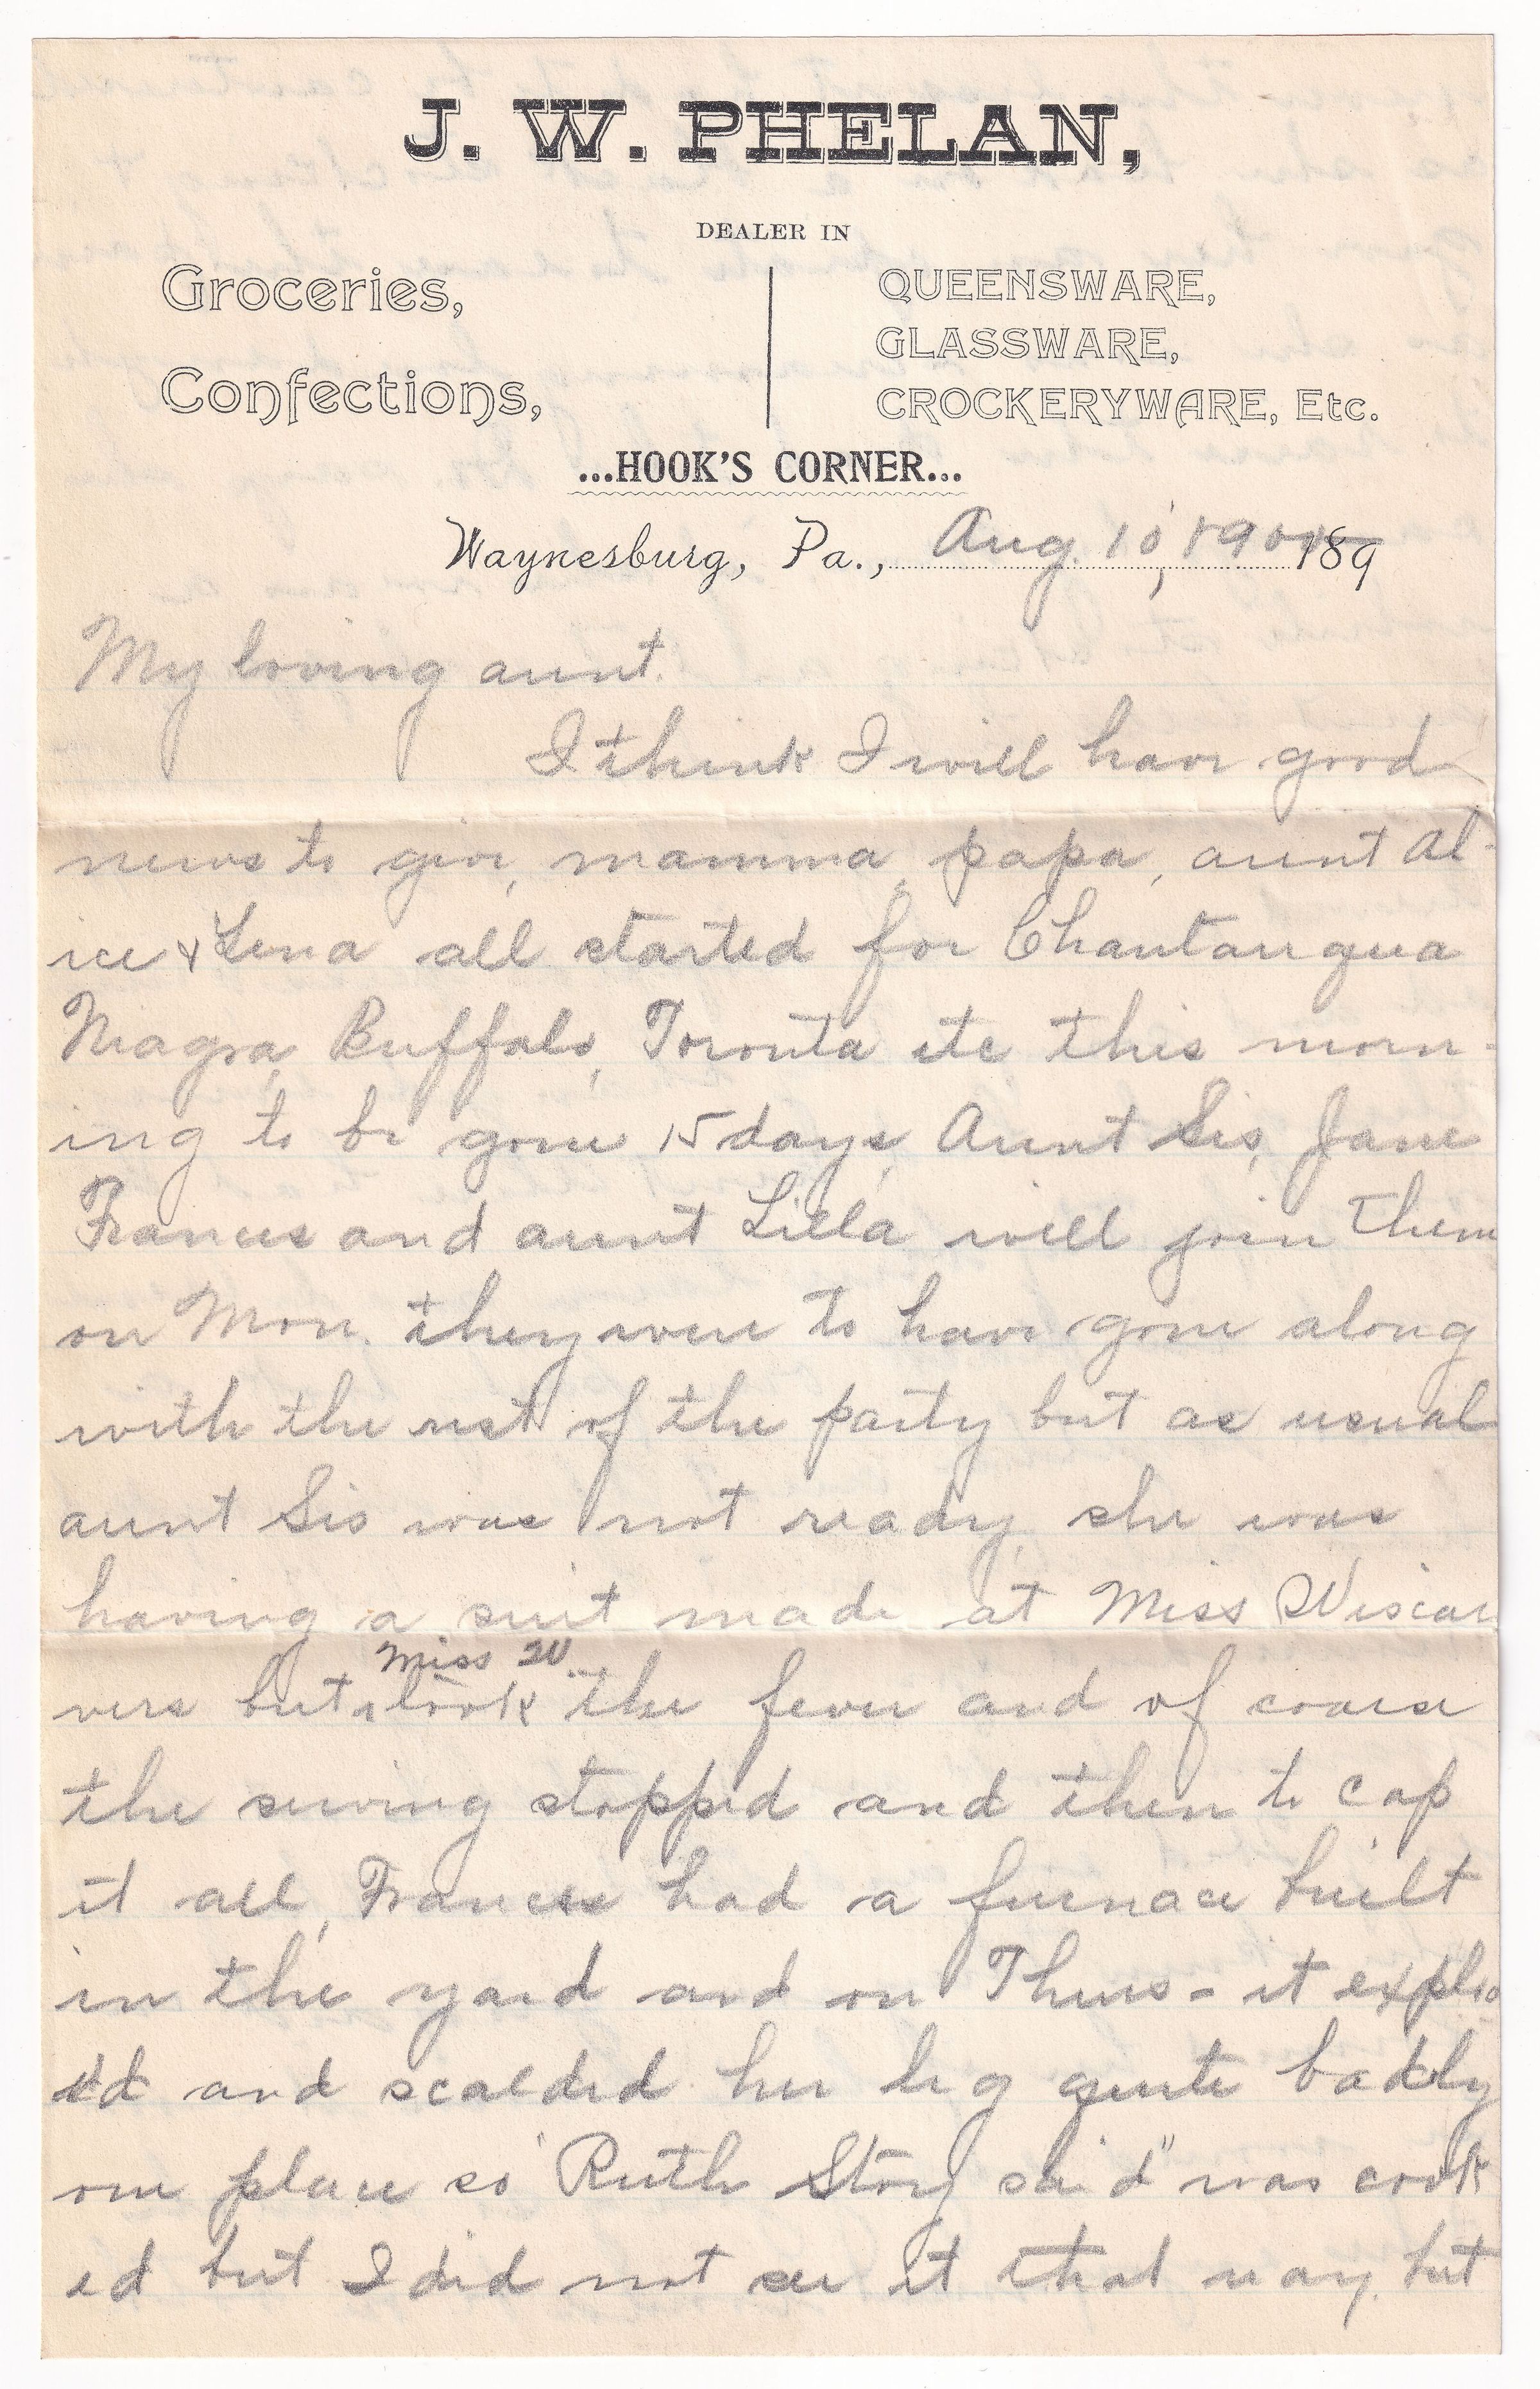 J. W. PHELAN,
DEALER IN
Groceries,
Confections,
QUEENSWARE,
GLASSWARE,
CROCKERYWARE, Etc.
...HOOK'S CORNER...
Waynesburg, Pa., Aug. 10, 189
My loving aunt.
I think I will have good
news to give, mamma, papa, aunt Al-
ice & Lena all started for Chautauqua
Niagra, Buffalo, Toronta etc this morn-
ing to be gone 15 days, Aunt Sis, Jane
Frances and aunt Lilla will join them
on Mon. they were to have gone along
with the rest of the party but as usual
aunt Sis was not ready, she was
having a suit made at Miss Wiscar
vers but Miss W. took the fever and of course
the sewing stopped and then to cap
it all, Frances had a furnace built
in the yard and on Thurs - it explo
ed and scalded her leg quite badly
one place so Ruth Story said "was cook
ed but I did not see it that way, but